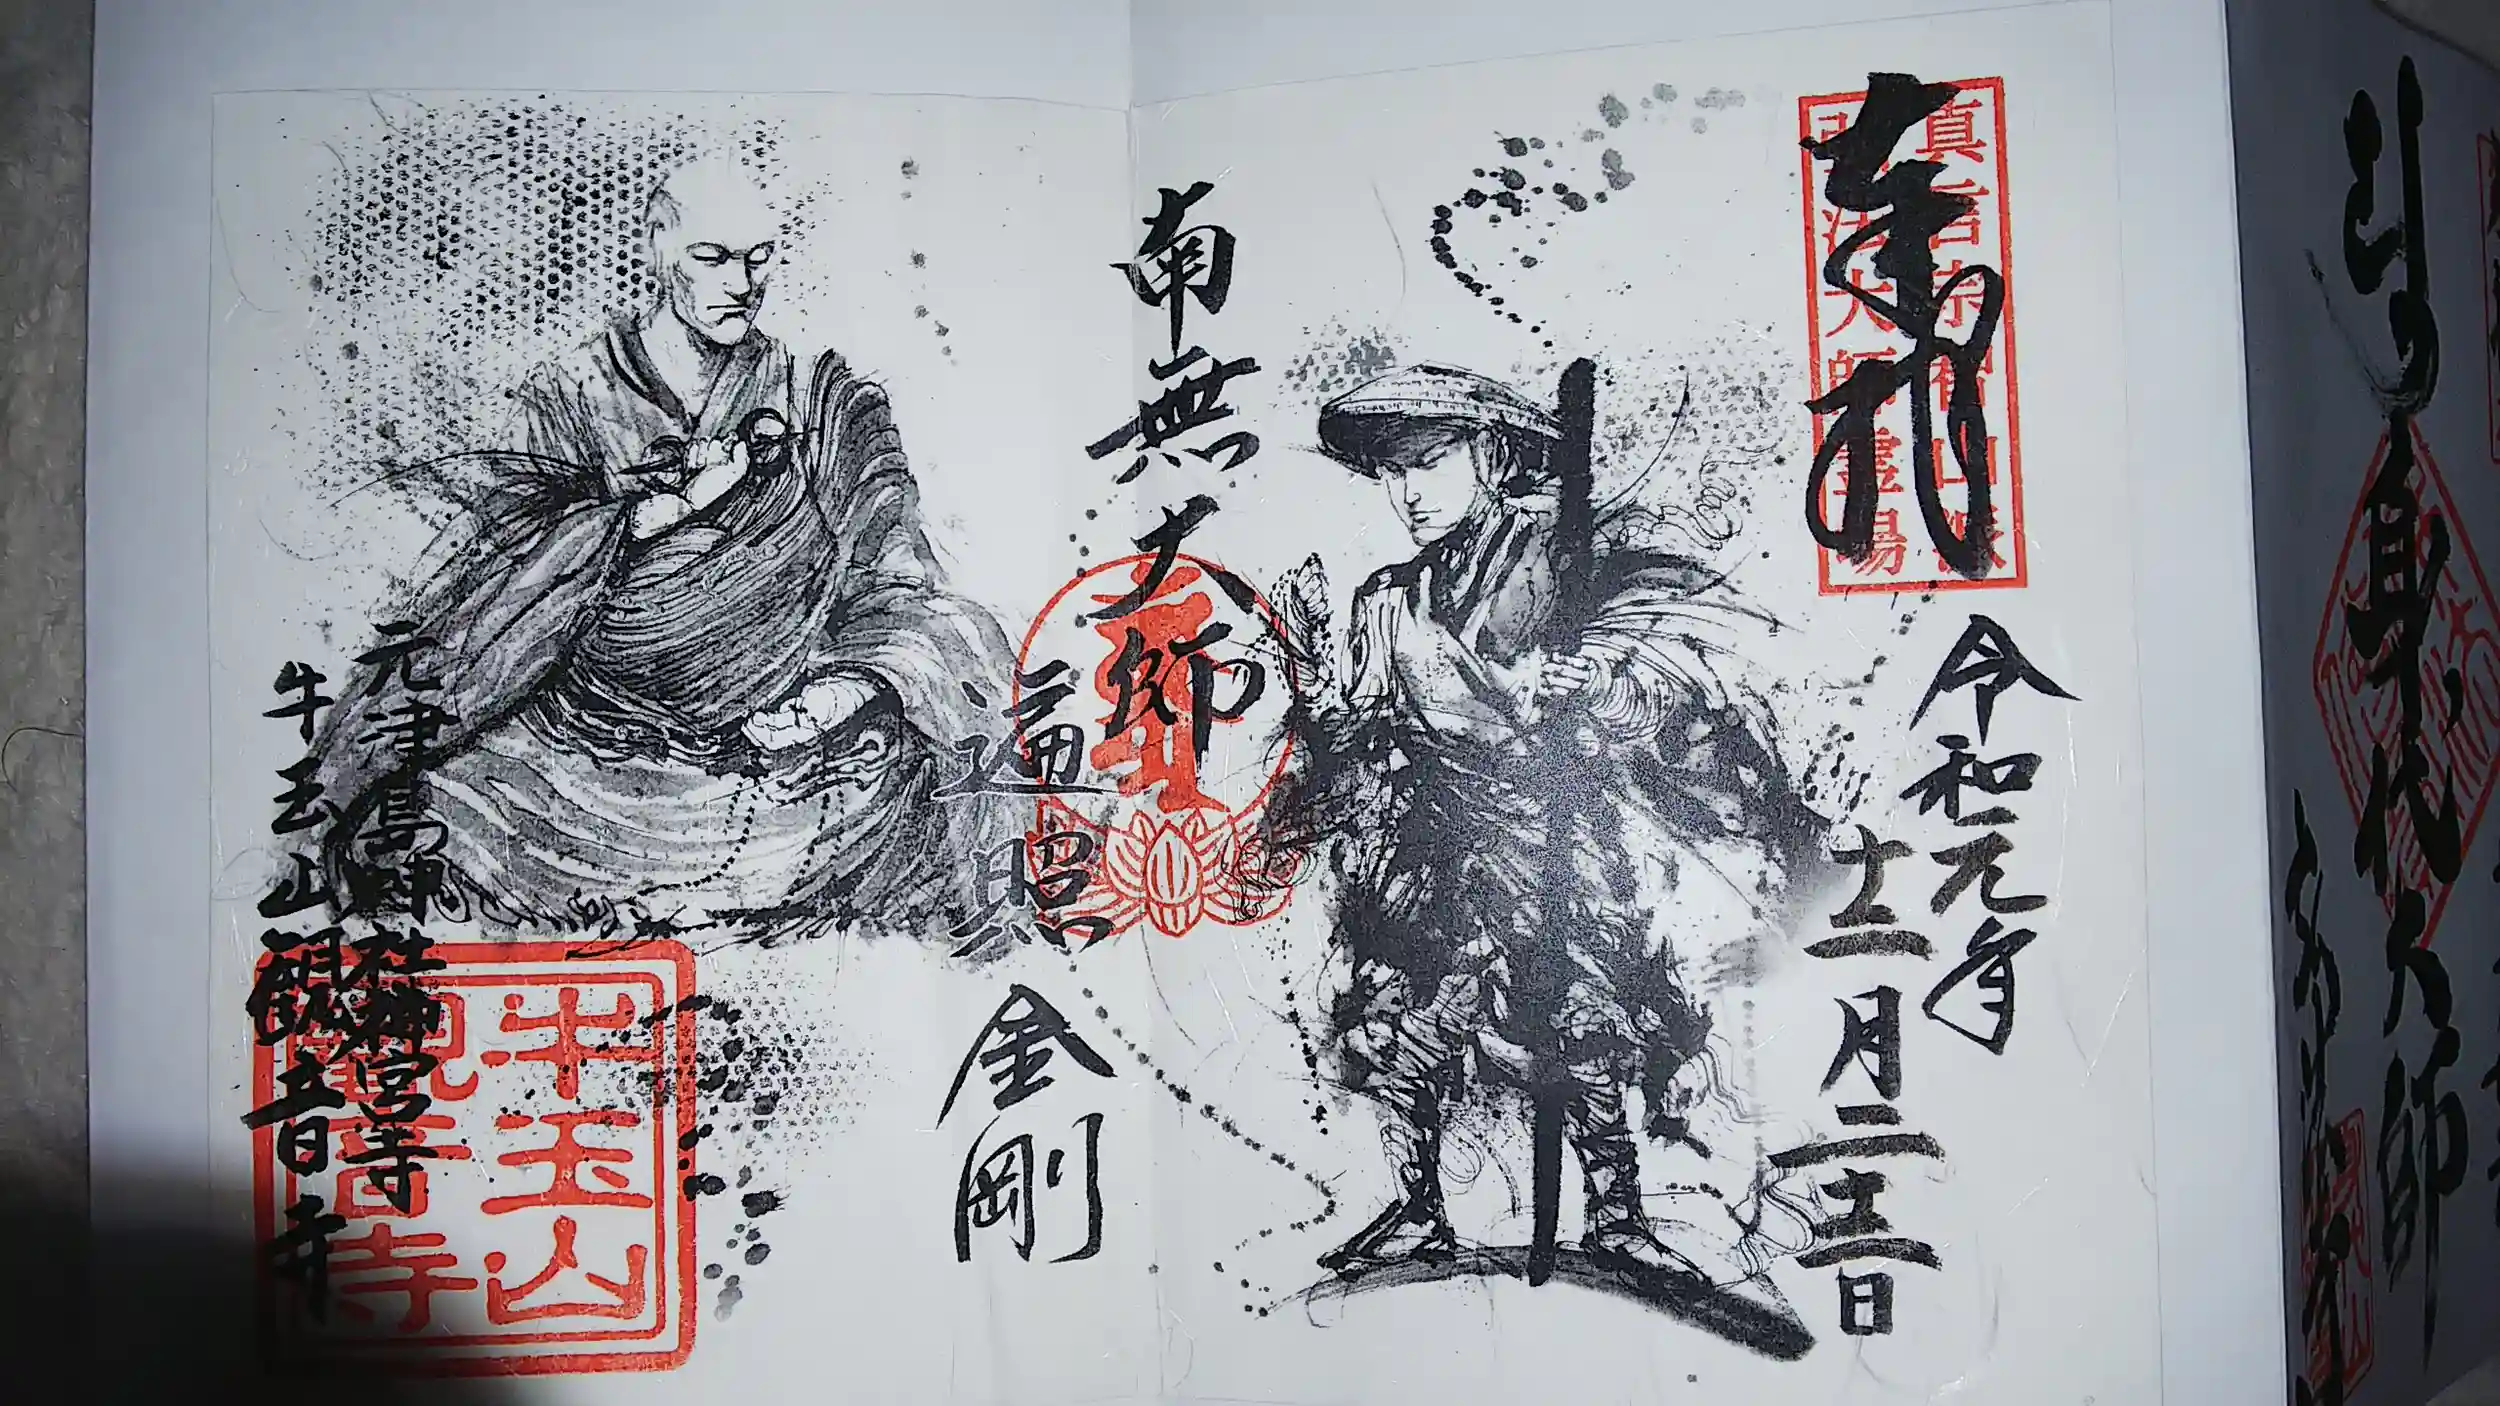 奉拝
真言宗智山派
弘法大師霊場
令和元年
十二月二十三日
南無大師
遍照金剛
元津島神社神宮寺
牛玉山観音寺
牛玉山
観音寺
耳代大師